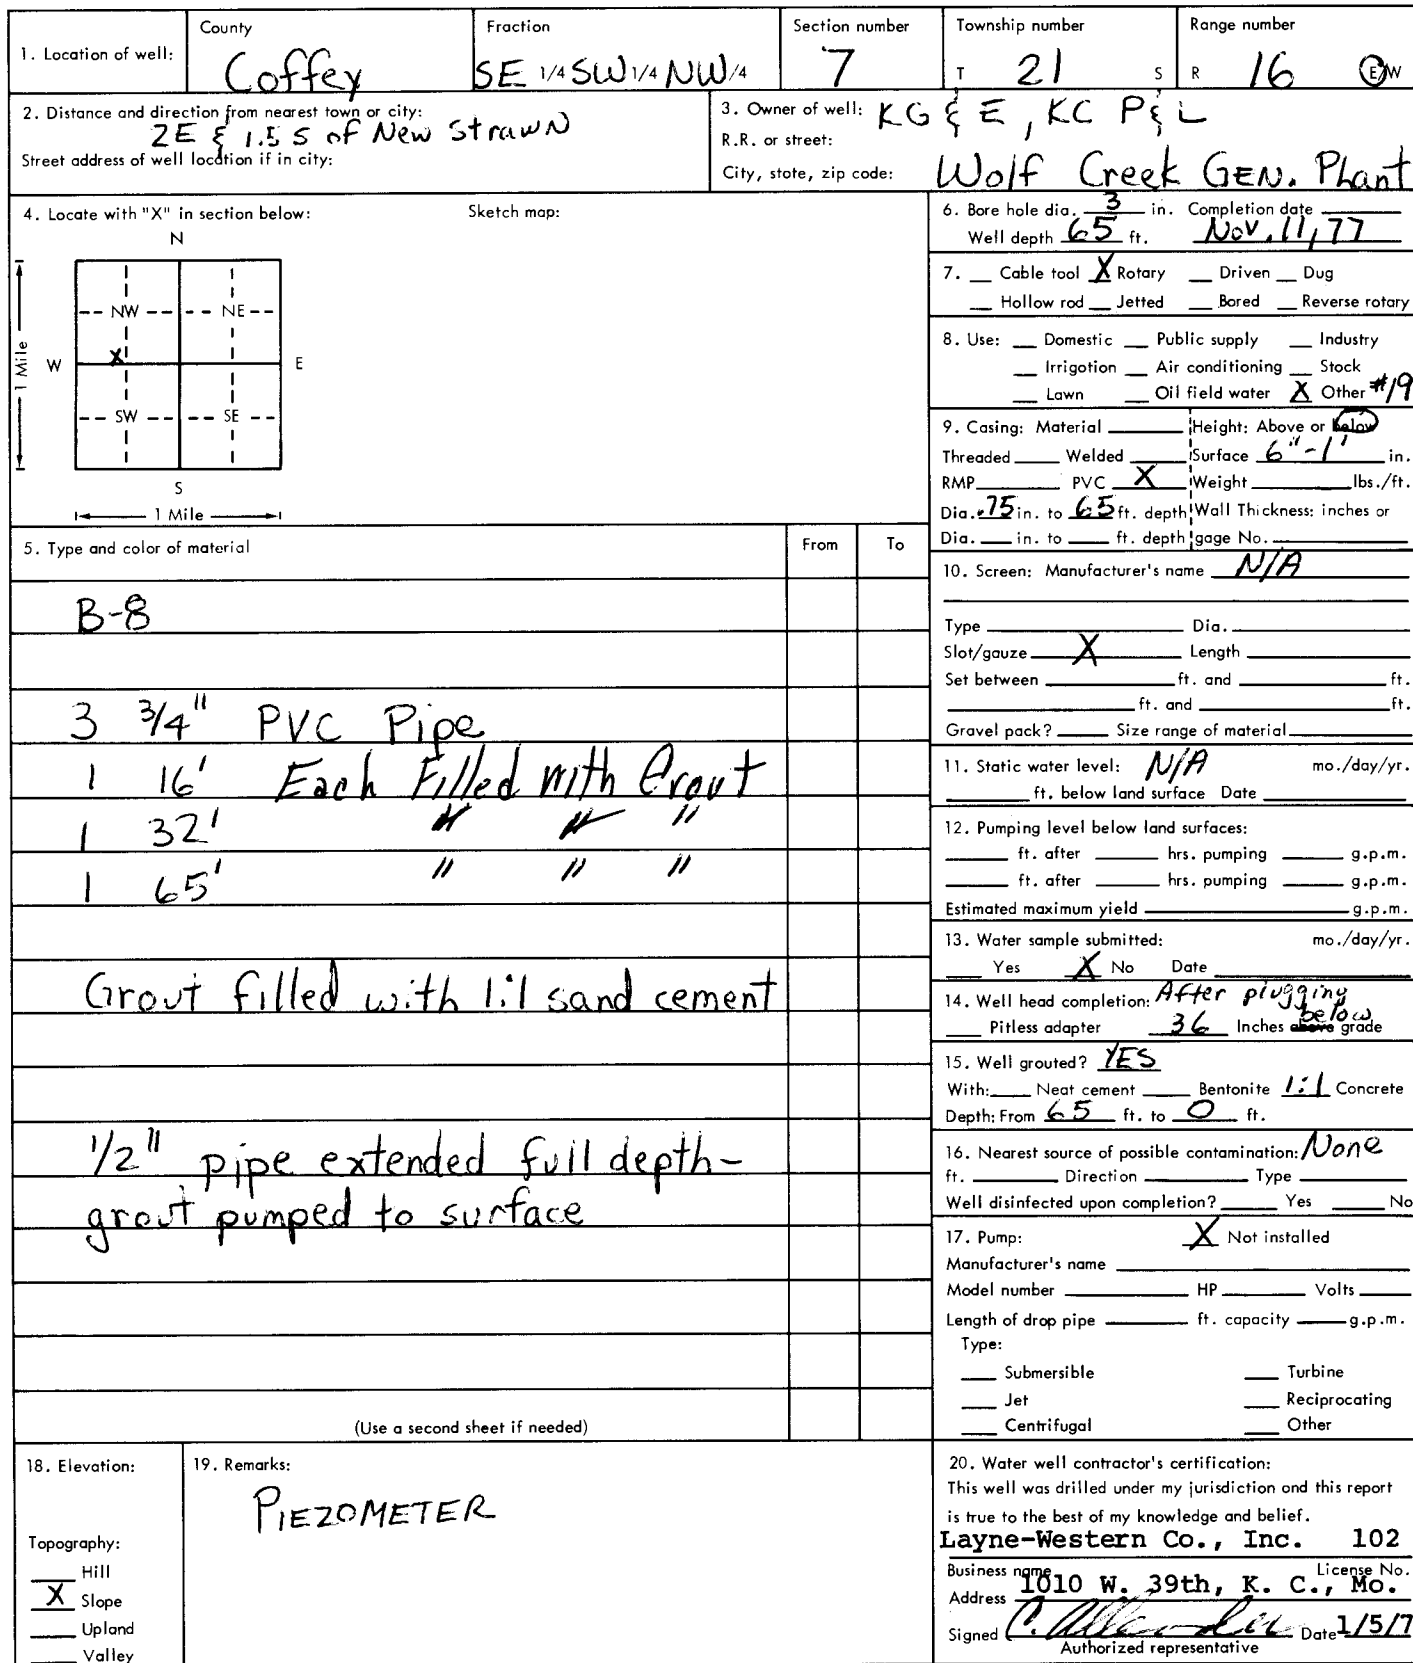 County Fraction Section number Township number Range number
1. Location of well: Coffey SE 1/4 SW 1/4 NW 1/4 7 T 21 S R 16 E/W
2. Distance and direction from nearest town or city:
2E & 1.5 S of New Strawn
Street address of well location if in city:
3. Owner of well: KG & E, KC P & L
R.R. or street:
City, state, zip code: Wolf Creek GEN. Plant
4. Locate with "X" in section below: Sketch map:
N
NW NE
W X E
1 Mile
SW SE
S
1 Mile
5. Type and color of material From To
B-8
3 3/4" PVC Pipe
1 16' Each Filled With Grout
1 32' " " "
1 65' " " "
Grout filled with 1:1 sand cement
1/2" pipe extended full depth-
grout pumped to surface
(Use a second sheet if needed)
6. Bore hole dia. 3 in. Completion date
Well depth 65 ft. Nov. 11, 77
7. Cable tool X Rotary Driven Dug
Hollow rod Jetted Bored Reverse rotary
8. Use: Domestic Public supply Industry
Irrigation Air conditioning Stock
Lawn Oil field water X Other #19
9. Casing: Material Height: Above or below
Threaded Welded Surface 6"-1' in.
RMP PVC X Weight lbs./ft.
Dia. .75 in. to 65 ft. depth Wall Thickness: inches or
Dia. in. to ft. depth gage No.
10. Screen: Manufacturer's name N/A
Type Dia.
Slot/gauze X Length
Set between ft. and ft.
ft. and ft.
Gravel pack? Size range of material
11. Static water level: N/A mo./day/yr.
ft. below land surface Date
12. Pumping level below land surfaces:
ft. after hrs. pumping g.p.m.
ft. after hrs. pumping g.p.m.
Estimated maximum yield g.p.m.
13. Water sample submitted: mo./day/yr.
Yes X No Date
14. Well head completion: After plugging
Pitless adapter 36 Inches above below grade
15. Well grouted? YES
With: Neat cement Bentonite 1:1 Concrete
Depth: From 65 ft. to 0 ft.
16. Nearest source of possible contamination: None
ft. Direction Type
Well disinfected upon completion? Yes No
17. Pump: X Not installed
Manufacturer's name
Model number HP Volts
Length of drop pipe ft. capacity g.p.m.
Type:
Submersible Turbine
Jet Reciprocating
Centrifugal Other
18. Elevation:
Topography:
Hill
X Slope
Upland
Valley
19. Remarks:
PIEZOMETER
20. Water well contractor's certification:
This well was drilled under my jurisdiction and this report
is true to the best of my knowledge and belief.
Layne-Western Co., Inc. 102
Business name License No.
Address 1010 W. 39th, K. C., Mo.
Signed Date 1/5/7
Authorized representative